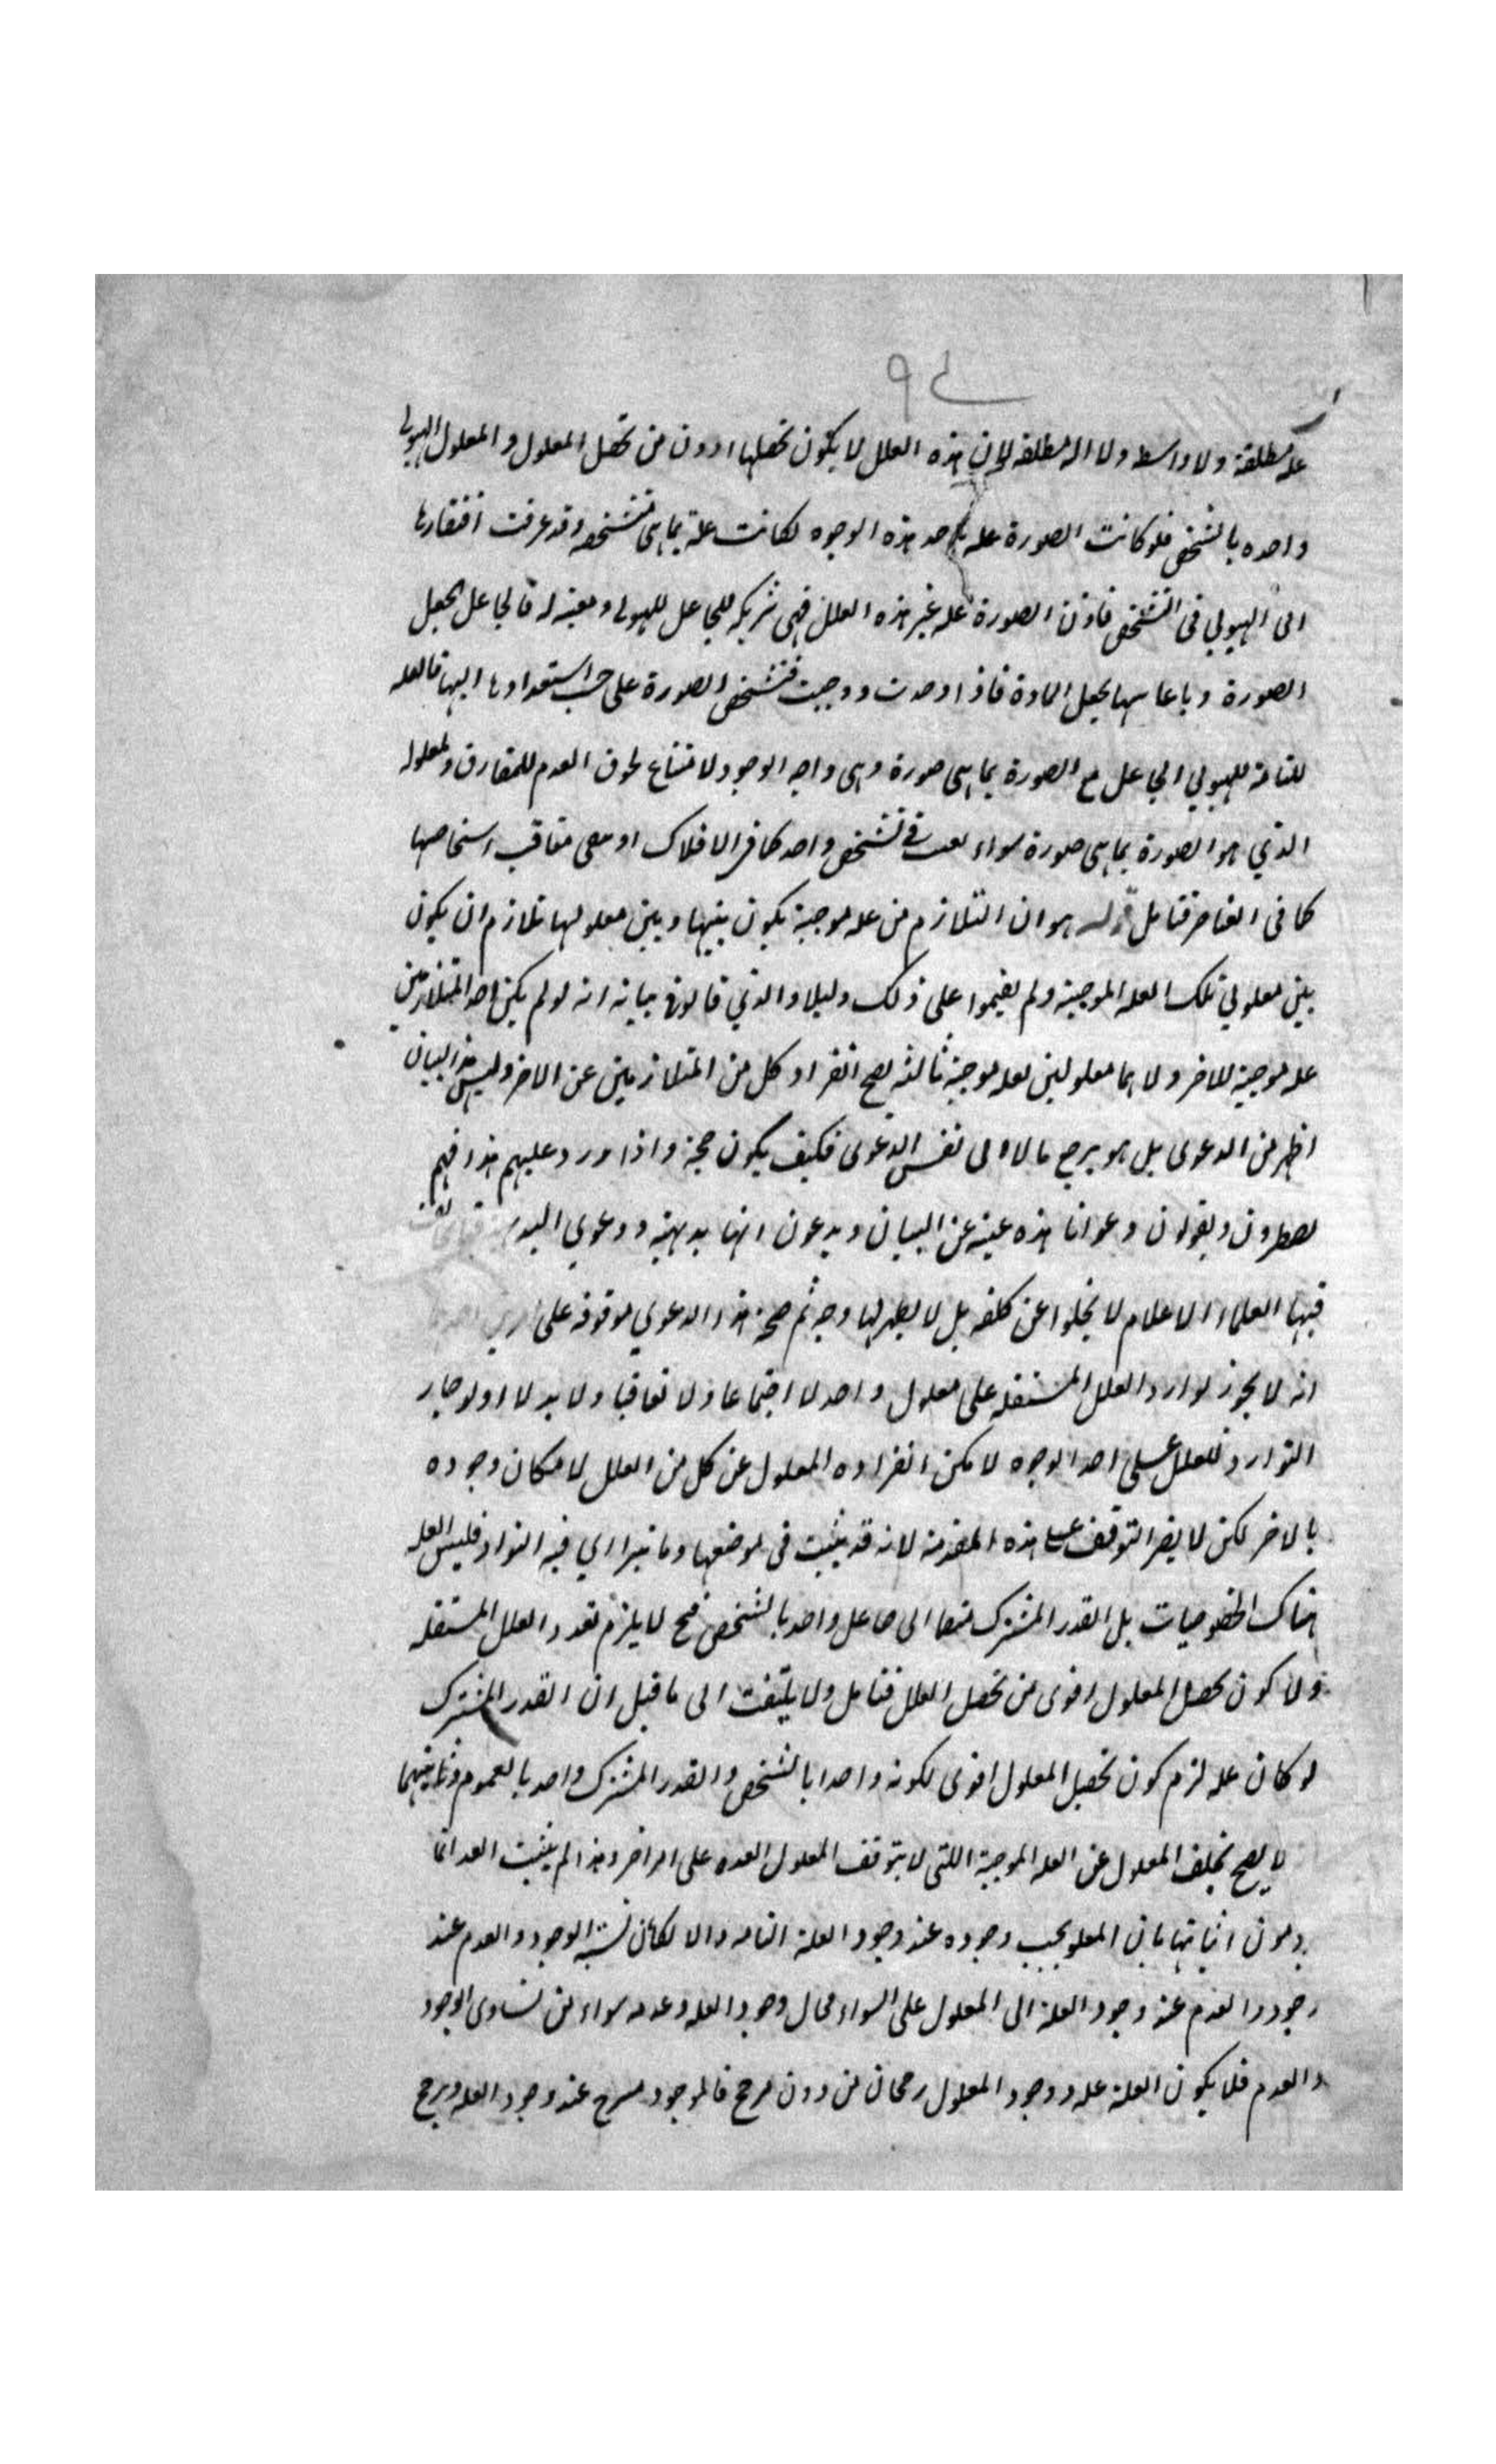 علة مطلقة ولا واسطه ولا اله مطلقه لان هذه العلل لا يكون تحصلها ادون من تحصل المعلول والمعلول الهيولى
واحده بالشخص فلو كانت الصورة عله باحد هذه الوجوه لكانت علة بما هى متشخصه وقد عرفت افتقارها
الى الهيولي فى التشخص فاذن الصورة عله غير هذه العلل فهى شريكه للجاعل للهيولى ومعينه له فالجاعل يجعل
الصورة وباعا سها يجعل المادة فاذا وجدت ووجبت فتشخص الصورة على حسب استعدادها اليها فالعله
التامة للهيولي الجاعل مع الصورة بما هى صورة وهى واجبه الوجود لامتناع لحوق العدم للمفارق ولمعلوله
الذي هو الصورة بما هى صورة سواء فى تشخص واحد كما فى الافلاك او تعاقب اشخاصها
كما فى العناصر فتامل قوله هو ان التلازم من عله موجبة يكون بينها وبين معلولها تلازم ان يكون
بين معلولي تلك العله الموجبة ولم يقيموا على ذلك دليلا والذي قالوا فى بيانه انه لو لم يكن احد المتلازمين
عله موجبة للاخر ولا هما معلولين لعله موجبة ثالثه يصح انفراد كل من المتلازمين عن الاخر وليس هذا البيان
اظهر من الدعوى بل هو يرجع مالا الى نفس الدعوى فكيف يكون حجة واذا ورد عليهم هذا فهم
يضطرون ويقولون دعوانا هذه غنية عن البيان ويدعون انها بديهية ودعوى
فيها العلماء الاعلام لا يخلوا عن كلفه بل لا يظهر لها وجه ثم صحة هذه الدعوي موقوفه على
انه لا يجوز توارد العلل المستقله على معلول واحد لا اجتماعا ولا تعاقبا ولا بدلا اذ لو جاز
التوارد للعلل على احد الوجوه لامكن انفراد المعلول عن كل من العلل لامكان وجوده
بالاخر لكن لا يضر التوقف على هذه المقدمة لانه قد يثبت فى موضعها وما يتراري فيه التوارد فليس العله
هناك الخصوصيات بل القدر المشترك منضما الى جاعل واحد بالشخص فح لا يلزم تعدد العلل المستقله
ولا كون تحصل المعلول اقوى من تحصل العلل فتامل ولا يلتفت الى ما قيل ان القدر المشترك
لو كان عله لزم كون تحصيل المعلول اقوى لكونه واحدا بالشخص والقدر المشترك واحد بالعموم وثانيهما
لا يصح تخلف المعلول عن العله الموجبة اللتى لا يتوقف المعلول بعده على امر اخر وهذا لم يثبت بعد انما
يرومون اثباتها بان المعلول يجب وجوده عند وجود العلة التامه والا لكان نسبة الوجود والعدم عند
وجود والعدم عند وجود العلة الى المعلول على السواء فحال وجود العله وعدمه سواء من تساوى الوجود
والعدم فلا يكون العلة عله ووجود المعلول رجحان من دون مرجح فالموجود مرجح عند وجود العله ويرجح